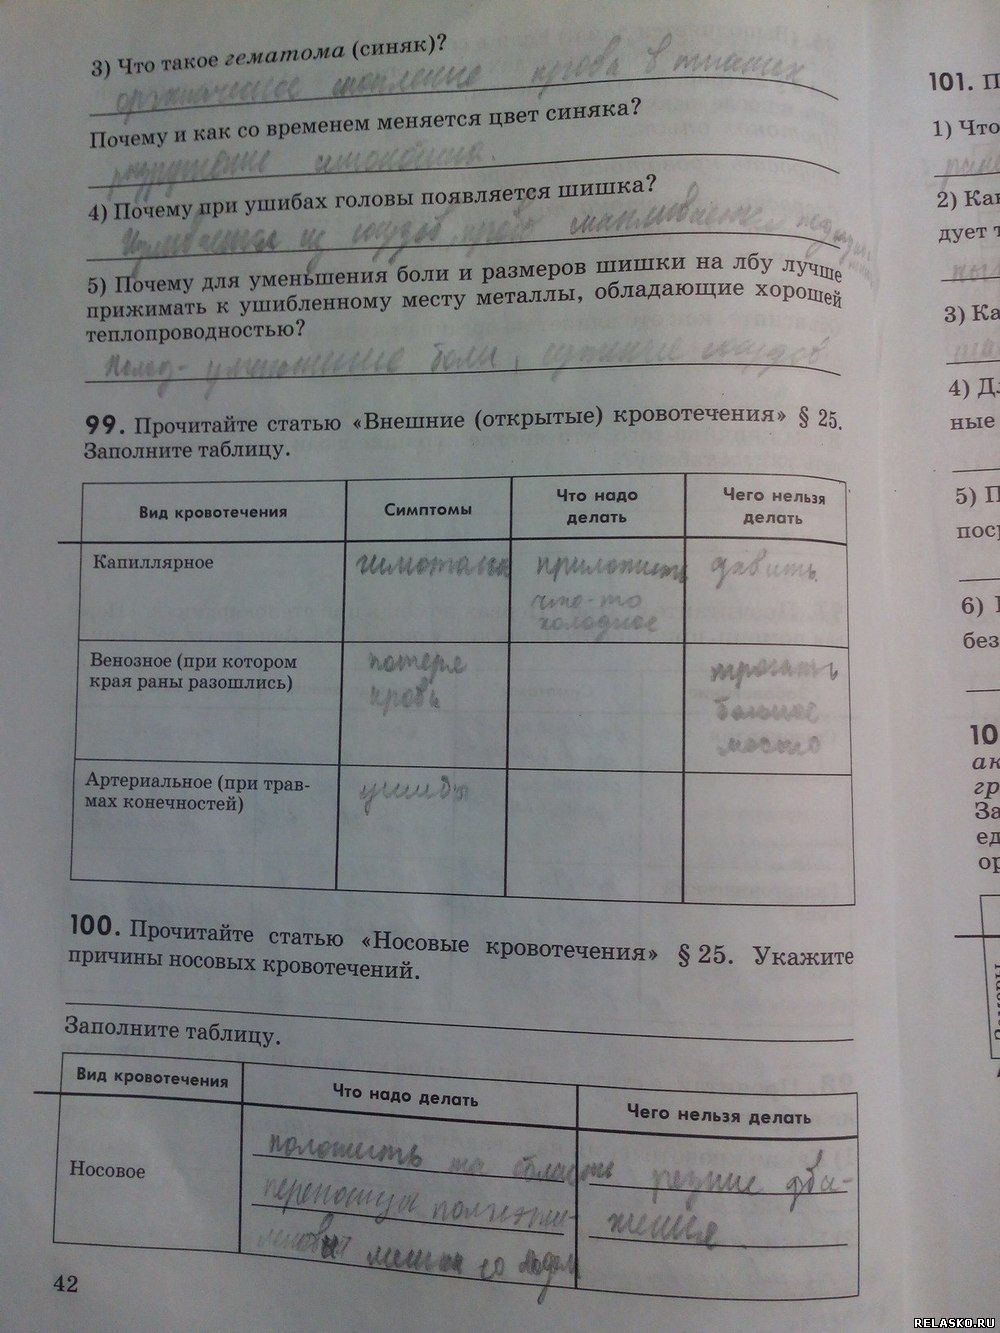 3) Что такое гематома (синяк)?
скопление крови в тканях
Почему и как со временем меняется цвет синяка?
разрушение гемоглобина.
4) Почему при ушибах головы появляется шишка?
из сосудов, кровь скапливается под
5) Почему для уменьшения боли и размеров шишки на лбу лучше
прижимать к ушибленному месту металлы, обладающие хорошей
теплопроводностью?
Холод- уменьшение боли, сужение сосудов
99. Прочитайте статью «Внешние (открытые) кровотечения» § 25.
Заполните таблицу.
Вид кровотечения
Симптомы
Что надо
делать
Чего нельзя
делать
Капиллярное
приложить
что-то
холодное
давить.
Венозное (при котором
края раны разошлись)
потеря
кровь
трогать
больное
место
Артериальное (при трав-
мах конечностей)
ушибы
100. Прочитайте статью «Носовые кровотечения» § 25. Укажите
причины носовых кровотечений.
Заполните таблицу.
Вид кровотечения
Что надо делать
Чего нельзя делать
Носовое
положить на область
переносицы полиэти-
леновый мешок со льдом
резкие дви-
жения
42
101. П
1) Что
2) Как
дует т
3) Ка
4) Дл
ные
5) П
поср
6)
без
10
ак
гр
За
ед
ор
RELASKO.RU